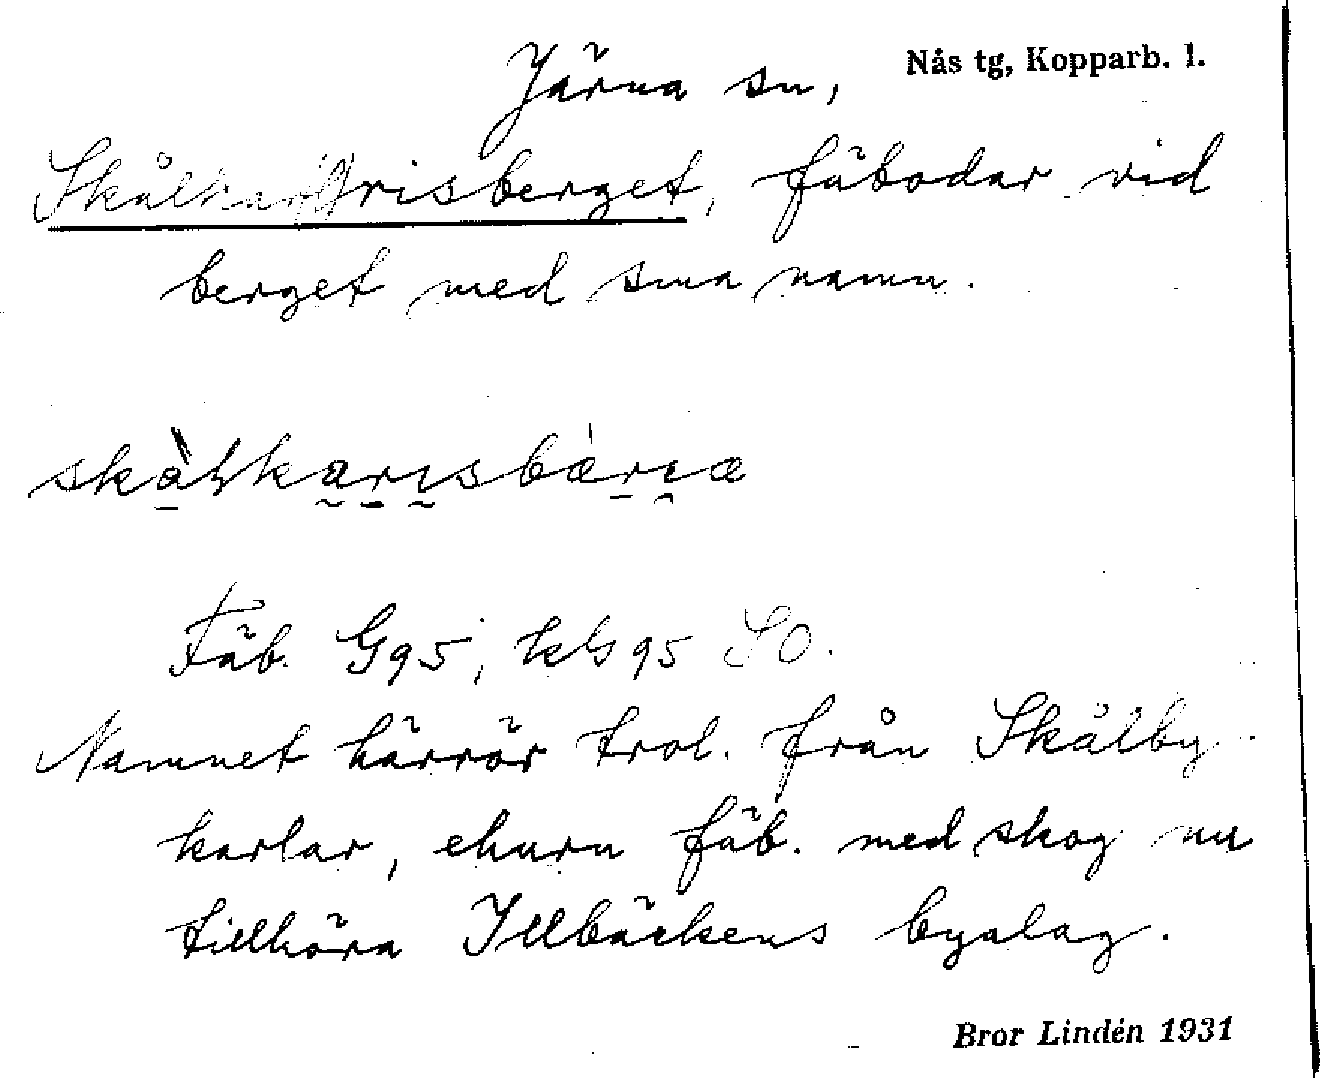 Järna sn, Nås tg, Kopparb. l.
Skålkarisberget, fäbodar vid
berget med sma namn.
Fäb. G95, kls 95 SO.
Namnet härrör trol. från Skålby-
karlar, ehuru fäb. med skog nu
tillhöra Illbäckens byalag.
Bror Lindén 1931